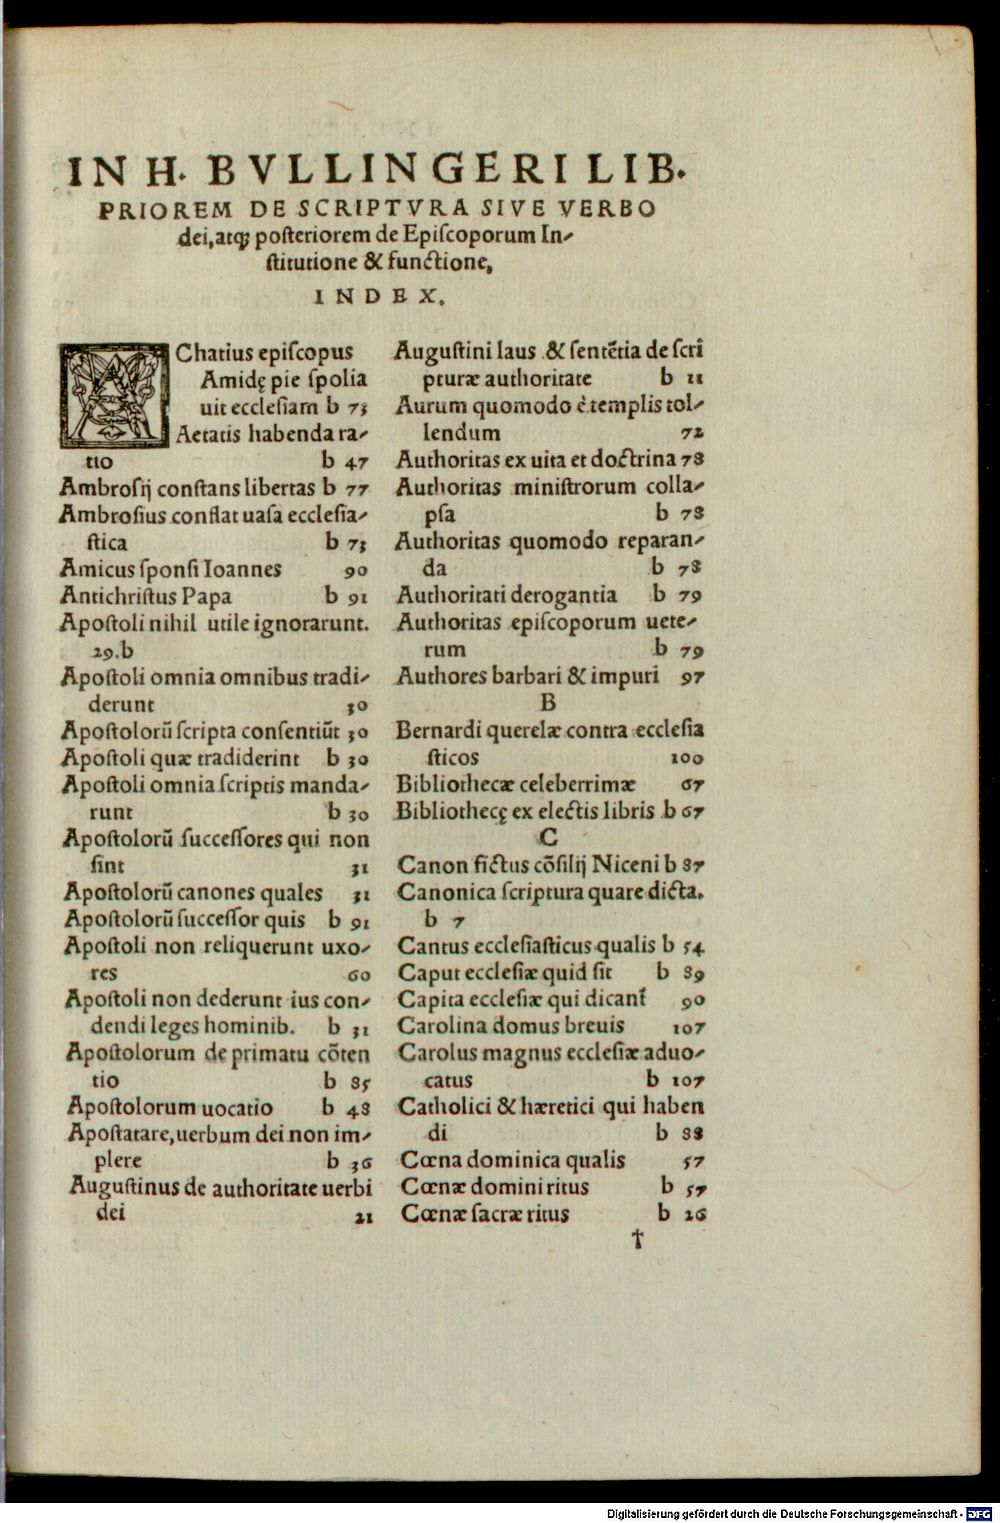 IN H. BVLLINGERI LIB.
PRIOREM DE SCRIPTVRA SIVE VERBO
dei, atq; posteriorem de Episcoporum In-
stitutione & functione,
INDEX.
AChatius episcopus
Amidę pie spolia
uit ecclesiam b 73
Aetatis habenda ra-
tio b 47
Ambrosij constans libertas b 77
Ambrosius conflat uasa ecclesia-
stica b 73
Amicus sponsi Ioannes 90
Antichristus Papa b 91
Apostoli nihil utile ignorarunt.
29.b
Apostoli omnia omnibus tradi-
derunt 30
Apostolorũ scripta consentiũt 30
Apostoli quæ tradiderint b 30
Apostoli omnia scriptis manda-
runt b 30
Apostolorũ successores qui non
sint 31
Apostolorũ canones quales 31
Apostolorũ successor quis b 91
Apostoli non reliquerunt uxo-
res 60
Apostoli non dederunt ius con-
dendi leges hominib. b 31
Apostolorum de primatu cõten
tio b 85
Apostolorum uocatio b 48
Apostatare, uerbum dei non im-
plere b 36
Augustinus de authoritate uerbi
dei 21
Augustini laus & sentẽtia de scri
pturæ authoritate b 11
Aurum quomodo è templis tol-
lendum 72
Authoritas ex uita et doctrina 78
Authoritas ministrorum colla-
psa b 78
Authoritas quomodo reparan-
da b 78
Authoritati derogantia b 79
Authoritas episcoporum uete-
rum b 79
Authores barbari & impuri 97
B
Bernardi querelæ contra ecclesia
sticos 100
Bibliothecæ celeberrimæ 67
Bibliothecę ex electis libris b 67
C
Canon fictus cõsilij Niceni b 87
Canonica scriptura quare dicta.
b 7
Cantus ecclesiasticus qualis b 54
Caput ecclesiæ quid sit b 89
Capita ecclesiæ qui dicant̃ 90
Carolina domus breuis 107
Carolus magnus ecclesiæ aduo-
catus b 107
Catholici & hæretici qui haben
di b 88
Cœna dominica qualis 57
Cœnæ domini ritus b 57
Cœnæ sacræ ritus b 26
†
Digitalisierung gefördert durch die Deutsche Forschungsgemeinschaft - DFG